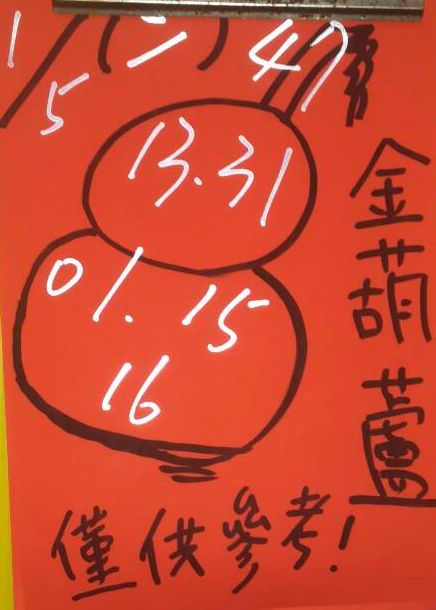 1/5 (二) 47
13.31
01.15
16
金葫蘆
僅供參考!